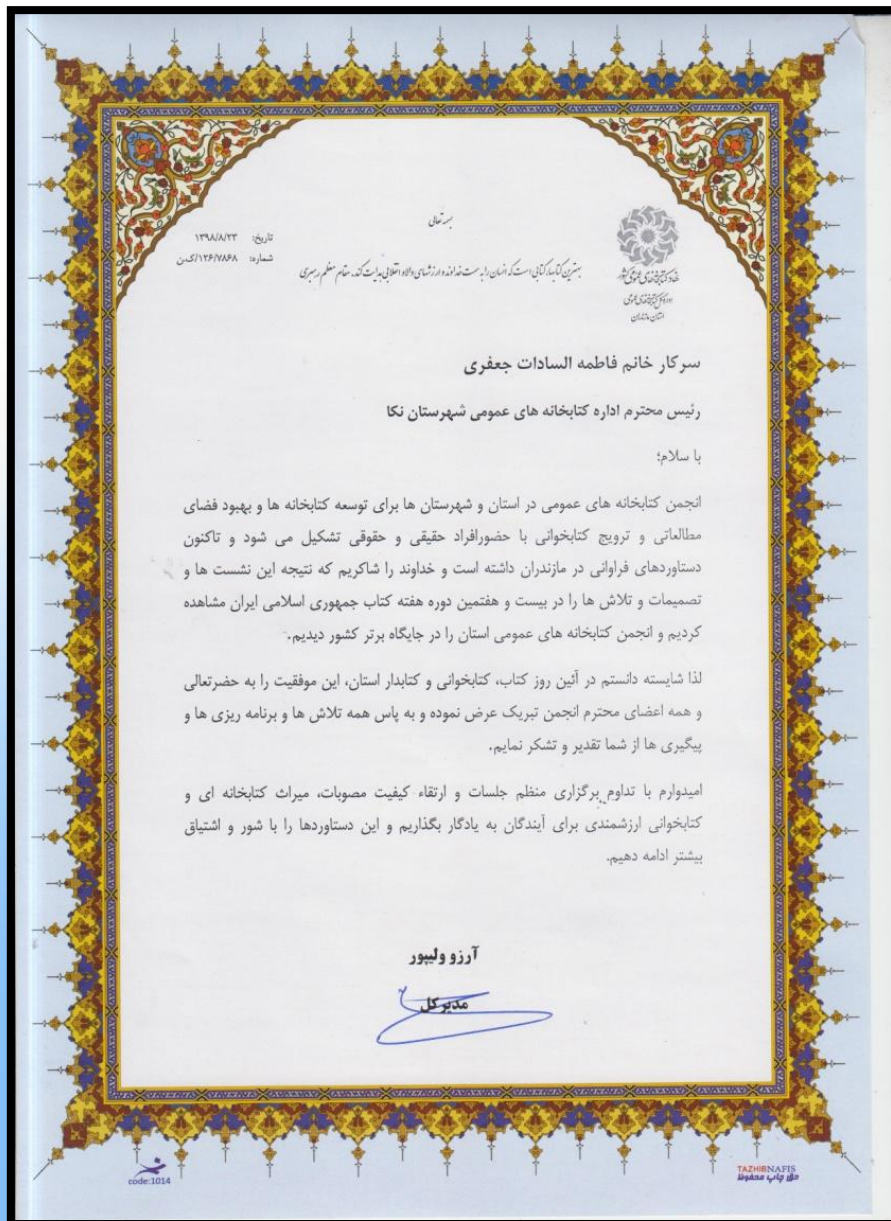 بسمه تعالی
تاریخ: ۱۳۹۸/۸/۲۳
شماره: ۱۲۶/۷۸۶۸/ک‌ن
بهترین کتابها، کتابی است که انسان را به سمت خداوند و ارزشهای والا و انقلابی هدایت کند. مقام معظم رهبری
نهاد کتابخانه‌های عمومی کشور
اداره کل کتابخانه‌های عمومی
استان مازندران
سرکار خانم فاطمه السادات جعفری
رئیس محترم اداره کتابخانه های عمومی شهرستان نکا
با سلام؛
انجمن کتابخانه های عمومی در استان و شهرستان ها برای توسعه کتابخانه ها و بهبود فضای
مطالعاتی و ترویج کتابخوانی با حضورافراد حقیقی و حقوقی تشکیل می شود و تاکنون
دستاوردهای فراوانی در مازندران داشته است و خداوند را شاکریم که نتیجه این نشست ها و
تصمیمات و تلاش ها را در بیست و هفتمین دوره هفته کتاب جمهوری اسلامی ایران مشاهده
کردیم و انجمن کتابخانه های عمومی استان را در جایگاه برتر کشور دیدیم.
لذا شایسته دانستم در آئین روز کتاب، کتابخوانی و کتابدار استان، این موفقیت را به حضرتعالی
و همه اعضای محترم انجمن تبریک عرض نموده و به پاس همه تلاش ها و برنامه ریزی ها و
پیگیری ها از شما تقدیر و تشکر نمایم.
امیدوارم با تداوم برگزاری منظم جلسات و ارتقاء کیفیت مصوبات، میراث کتابخانه ای و
کتابخوانی ارزشمندی برای آیندگان به یادگار بگذاریم و این دستاوردها را با شور و اشتیاق
بیشتر ادامه دهیم.
آرزو ولیپور
مدیرکل
code:1014
TAZHIBNAFIS
حق چاپ محفوظ